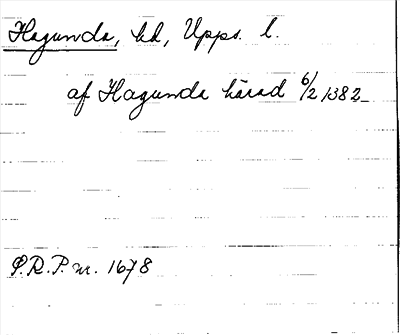 Hagunda, hd, Upps. l.
af Hagunda härad 6/2 1382
P.R.P. nr. 1678